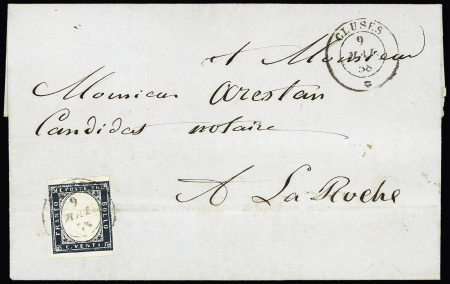 CLUSES
9
MAG
58
A Monsieur
Monsieur Arestan
Candidat notaire
A La Roche
C. POSTE 20
FRANCO
BOLLO
C. VENTI
9
MAG